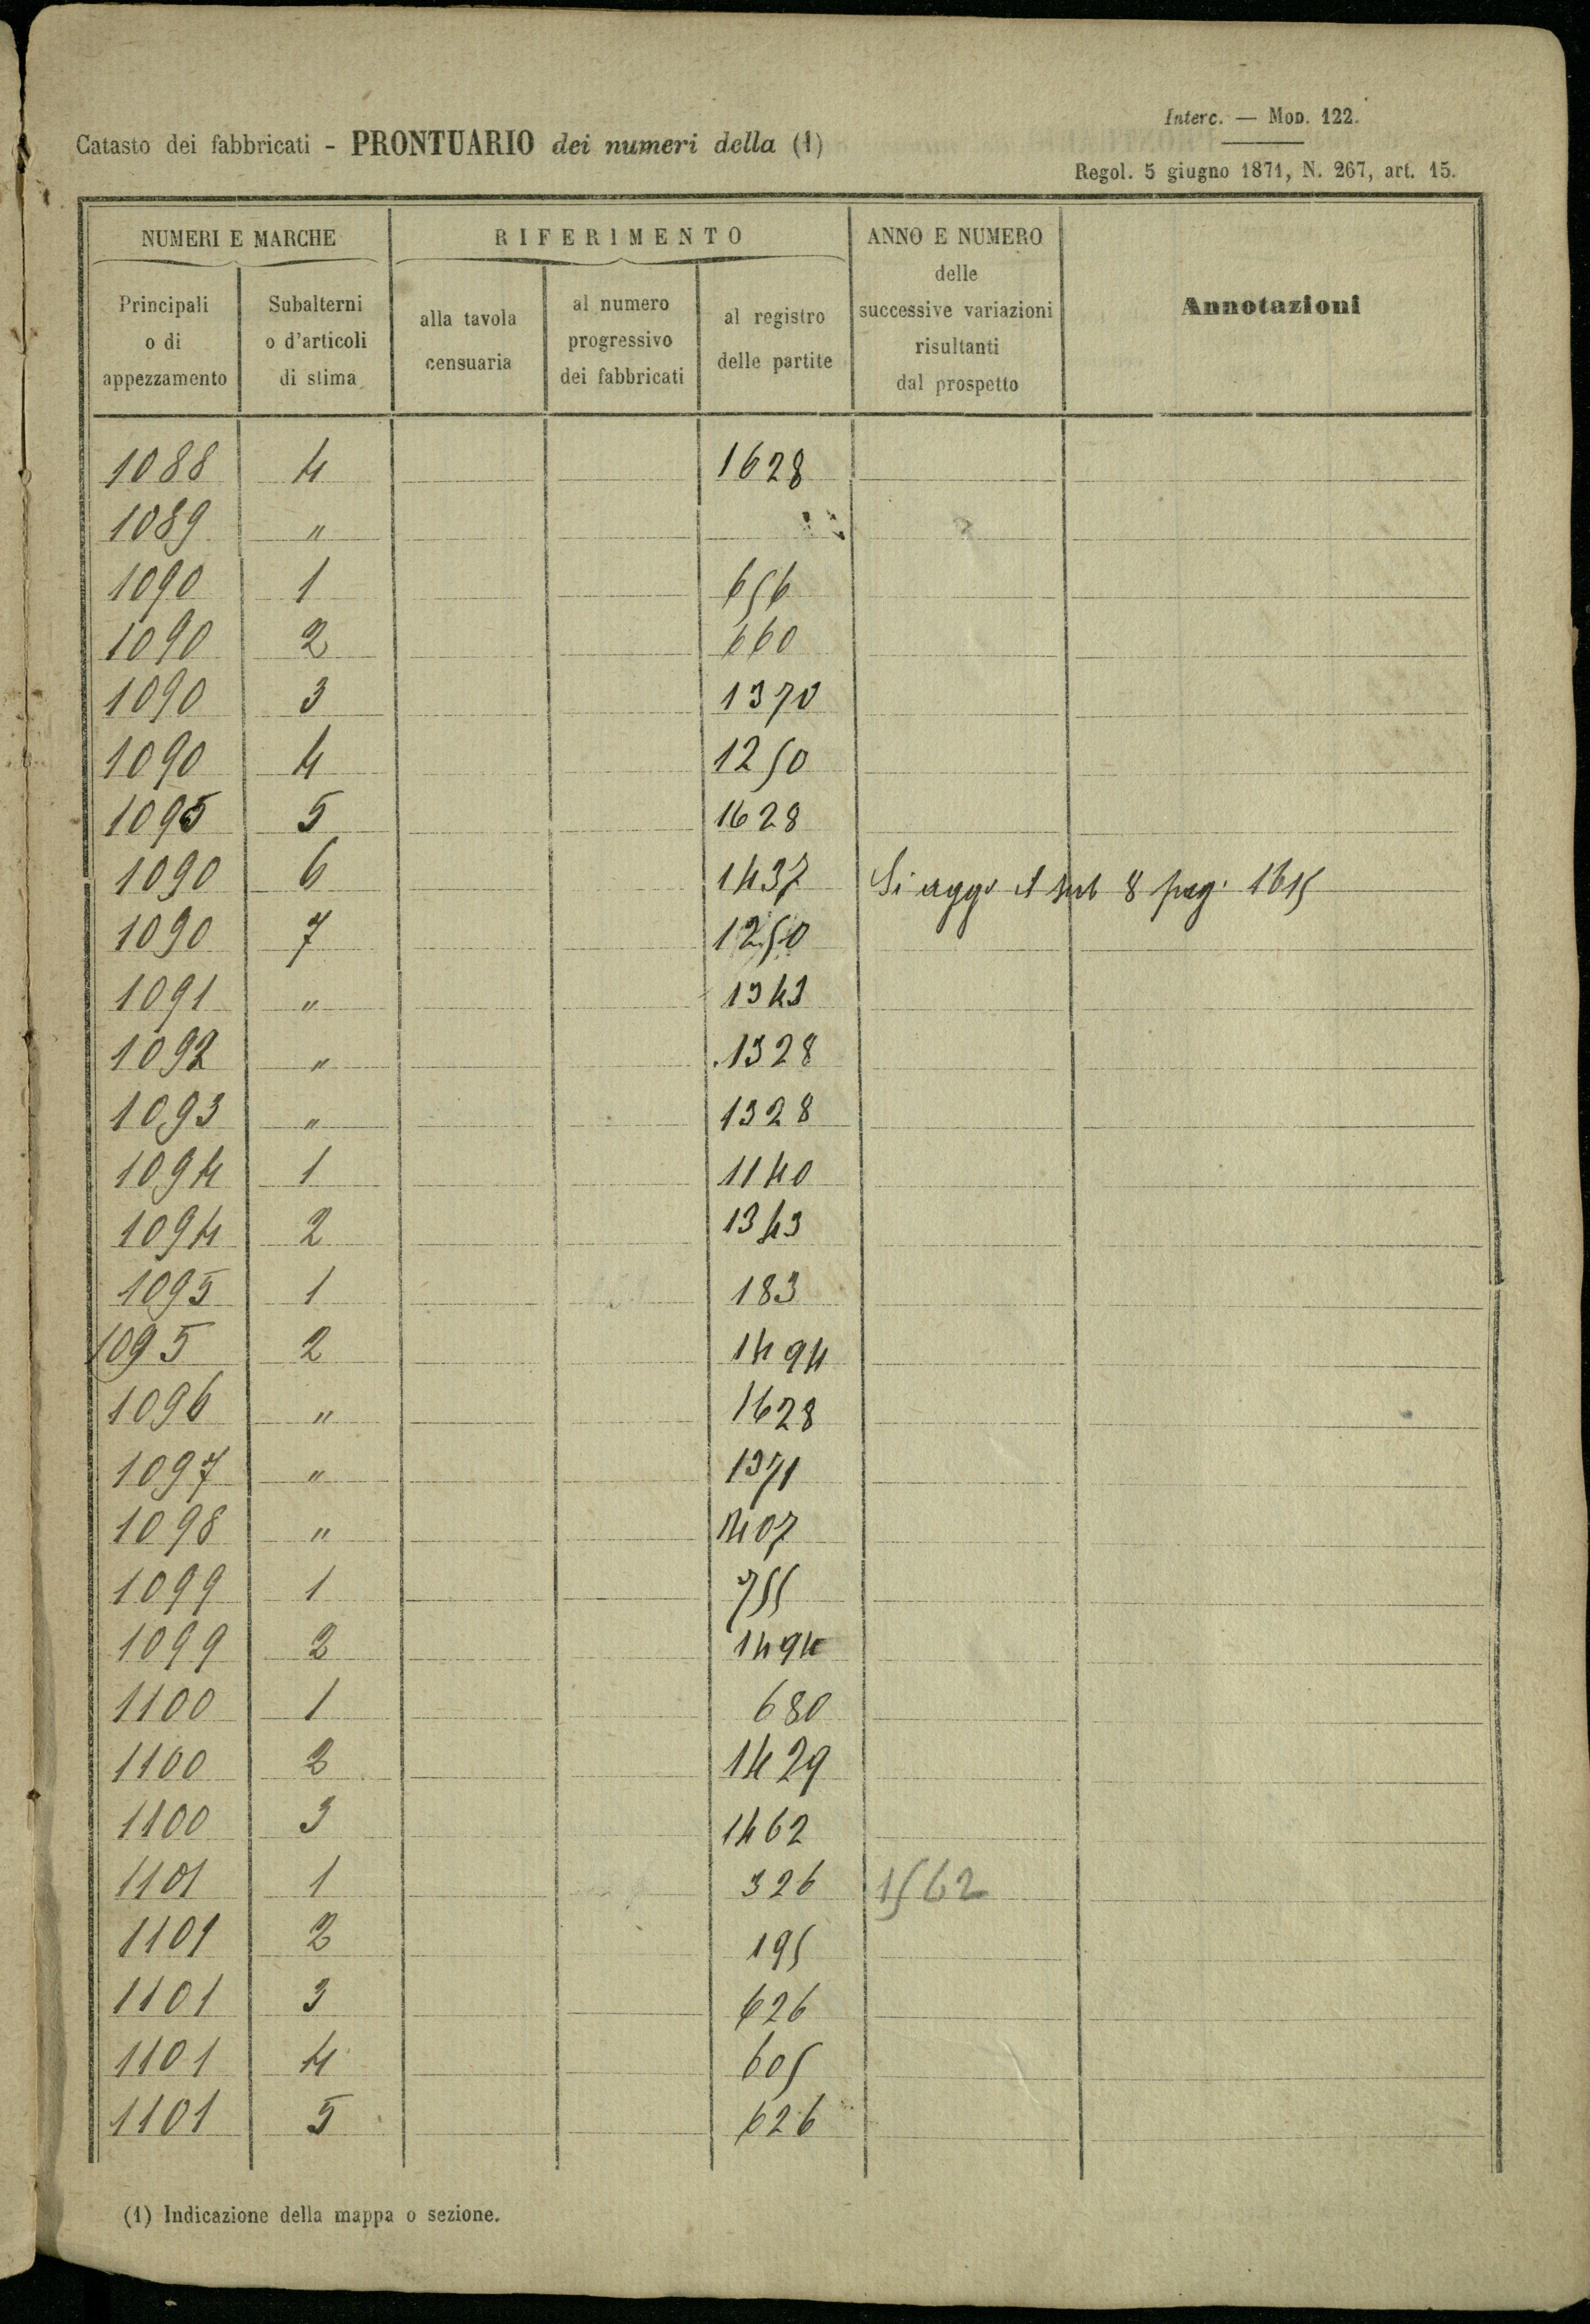 Interc. — Mod. 122.
Catasto dei fabbricati - PRONTUARIO dei numeri della (1)
Regol. 5 giugno 1871, N. 267, art. 15.
NUMERI E MARCHE RIFERIMENTO ANNO E NUMERO delle successive variazioni risultanti dal prospetto Annotazioni
Principali o di appezzamento Subalterni o d'articoli di stima alla tavola censuaria al numero progressivo dei fabbricati al registro delle partite
1088 4 1628
1089 "
1090 1 656
1090 2 660
1090 3 1370
1090 4 1250
1095 5 1628
1090 6 1437 Si agg. il sub 8 pag. 1615
1090 7 1250
1091 " 1343
1092 " 1328
1093 " 1328
1094 1 1140
1094 2 1343
1095 1 183
1095 2 1494
1096 " 1628
1097 " 1371
1098 " 1407
1099 1 755
1099 2 1494
1100 1 680
1100 2 1429
1100 3 1462
1101 1 326 1562
1101 2 195
1101 3 626
1101 4 605
1101 5 626
(1) Indicazione della mappa o sezione.